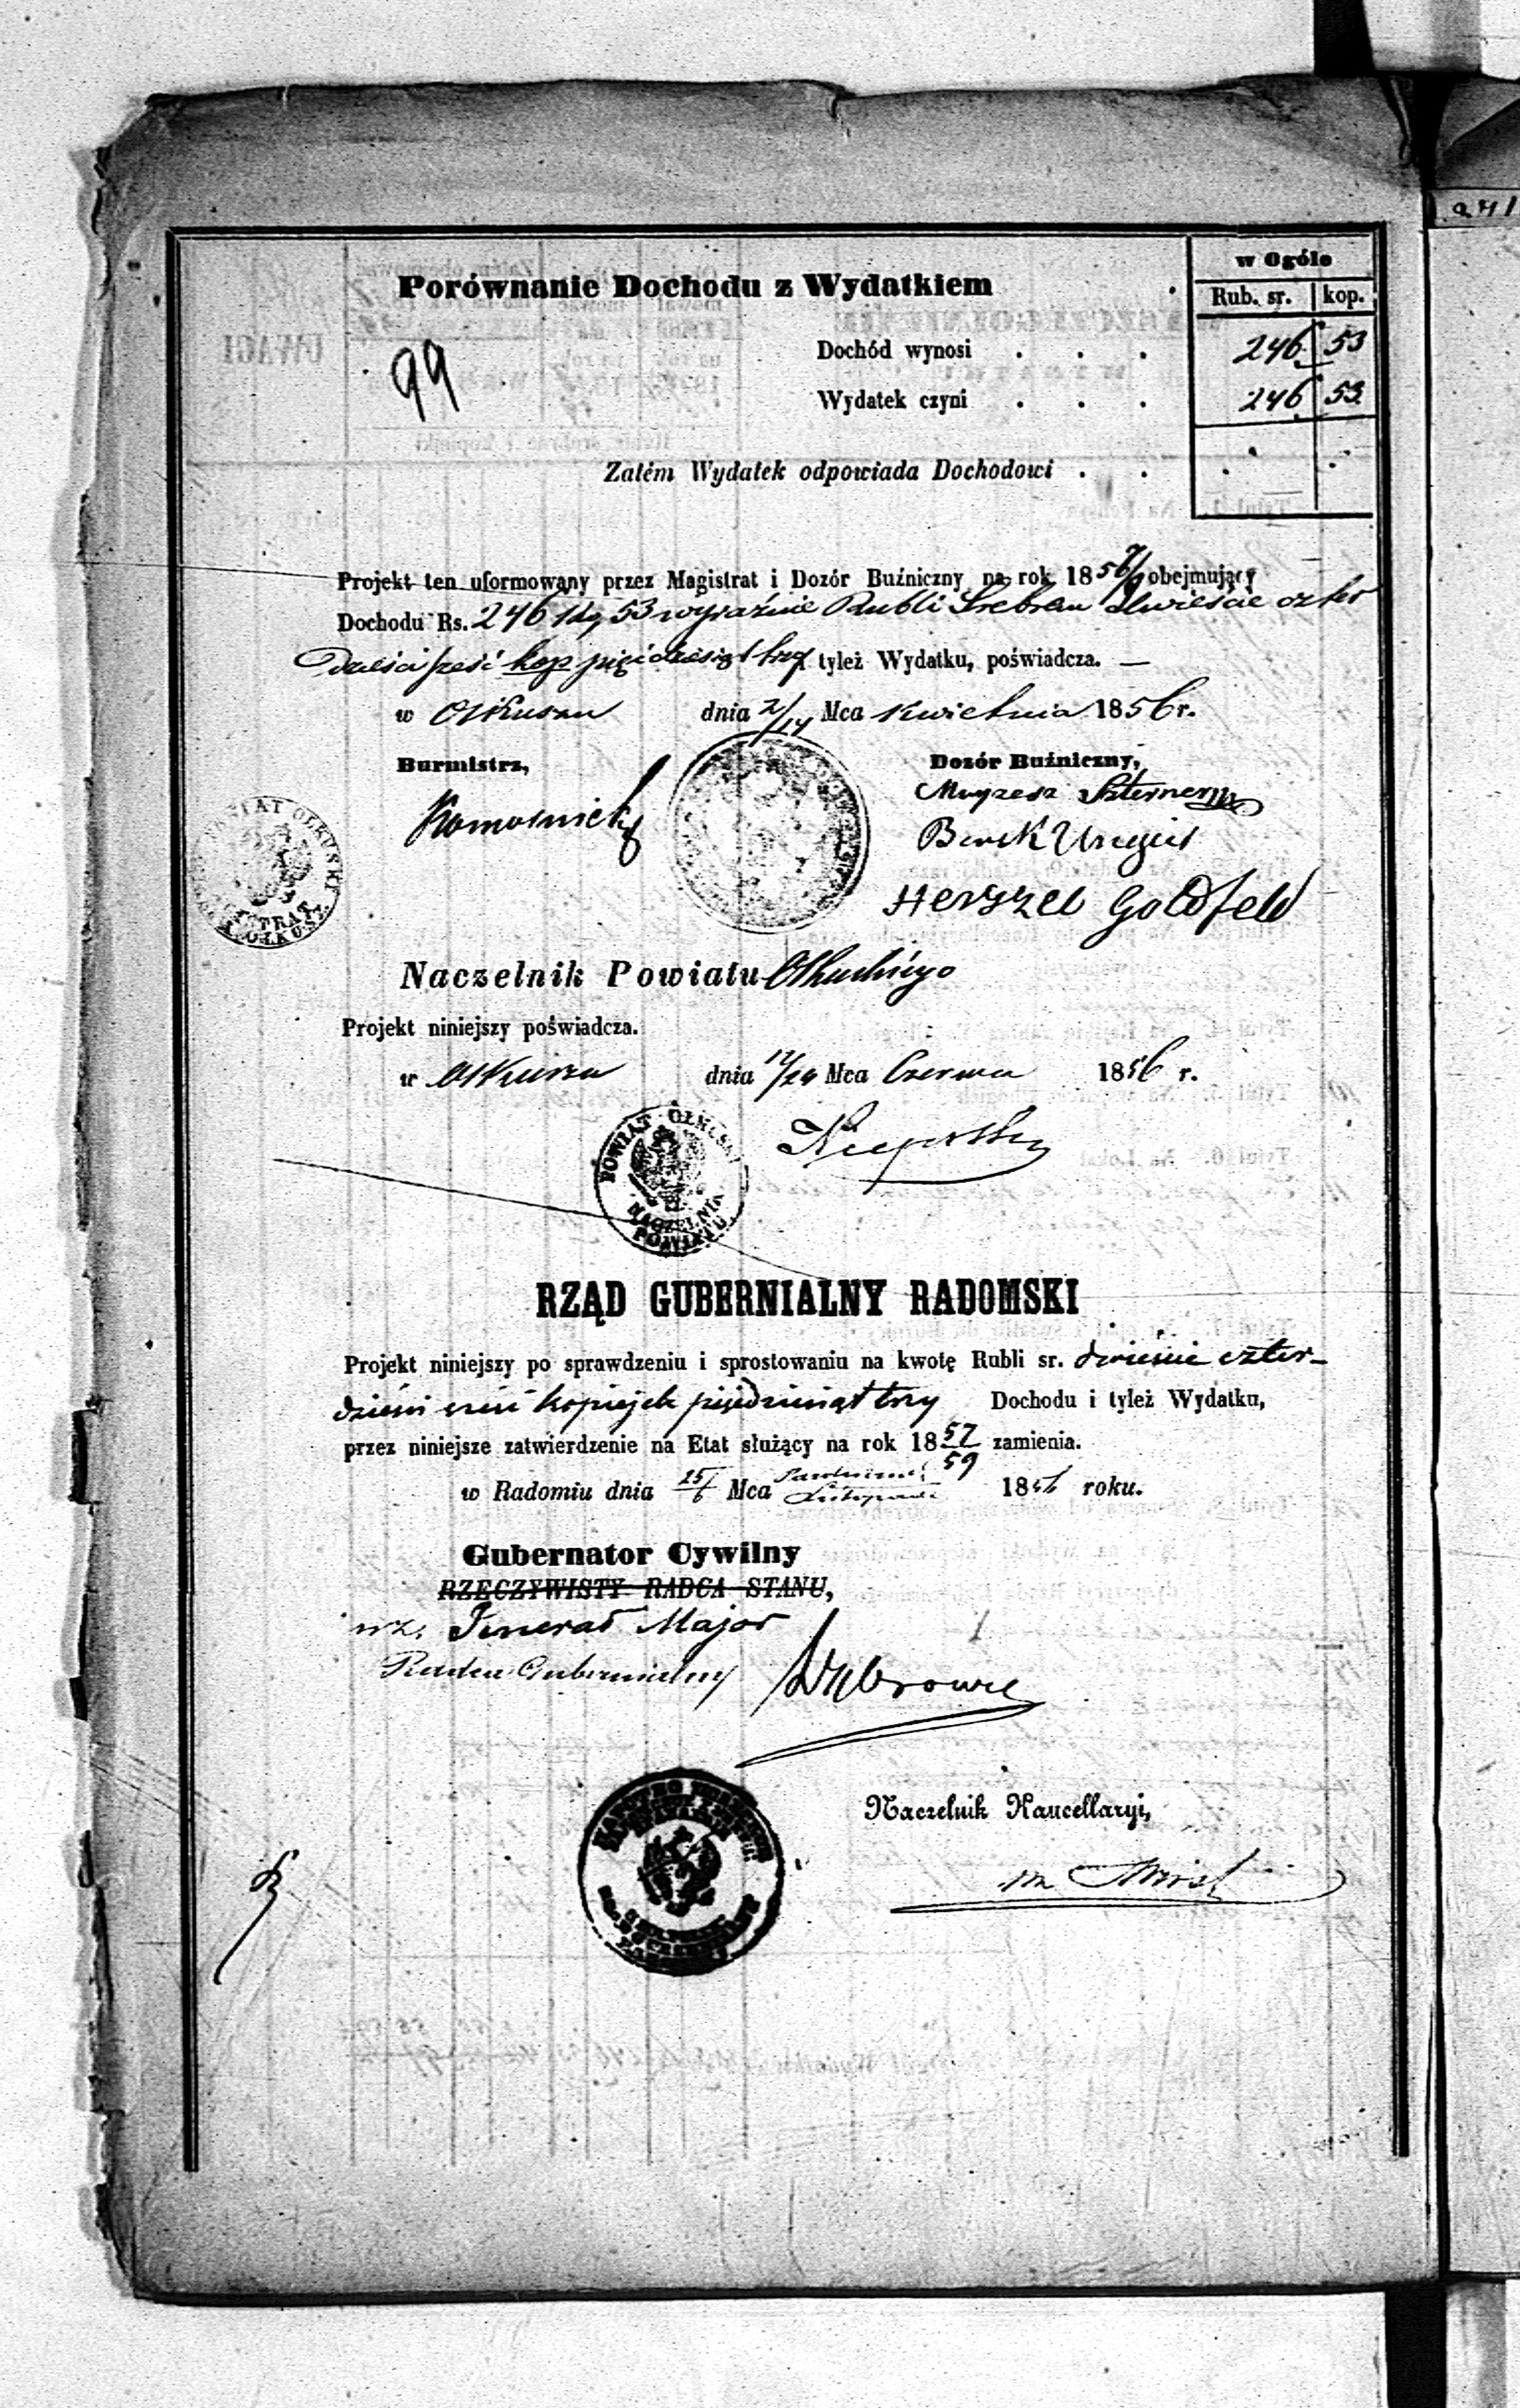 241
w Ogóle
Porównanie Dochodu z Wydatkiem
Rub. sr. kop.
99
Dochód wynosi . . . 246 53
Wydatek czyni . . . 246 53
Zatém Wydatek odpowiada Dochodowi . .
Projekt ten uformowany przez Magistrat i Dozór Buźniczny na rok 1857/9 obejmujący
Dochodu Rs. 246 kop 53 wyraźnie Rubli Srebrem dwieście czter
dzieści sześć kop pięćdziesiąt trzy tyleż Wydatku, poświadcza. —
w Olkuszu dnia 2/14 Mca Kwietnia 1856 r.
Burmistrz,
Dozór Buźniczny,
Szternern
Berek
Herszel Goldfeld
POWIAT OLKUSKI
Naczelnik Powiatu Olkuskiego
Projekt niniejszy poświadcza.
w Olkuszu dnia 12/24 Mca Czerwca 1856 r.
POWIAT OLKUSKI
NACZELNIK
POWIATU
RZĄD GUBERNIALNY RADOMSKI
Projekt niniejszy po sprawdzeniu i sprostowaniu na kwotę Rubli sr. dwieście czter-
dzieści sześć kopiejek pięćdziesiąt trzy Dochodu i tyleż Wydatku,
przez niniejsze zatwierdzenie na Etat służący na rok 1857/59 zamienia.
w Radomiu dnia 25/6 Mca Października/Listopada 1856 roku.
Gubernator Cywilny
RZECZYWISTY RADCA STANU,
wz. Jenerał Major
Radca Gubernialny
Naczelnik Kancellaryi,